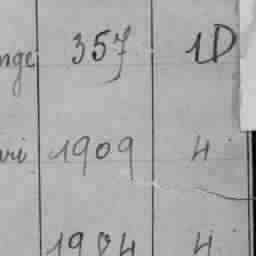 nge 357 1D
vri 1909 4
1904 4